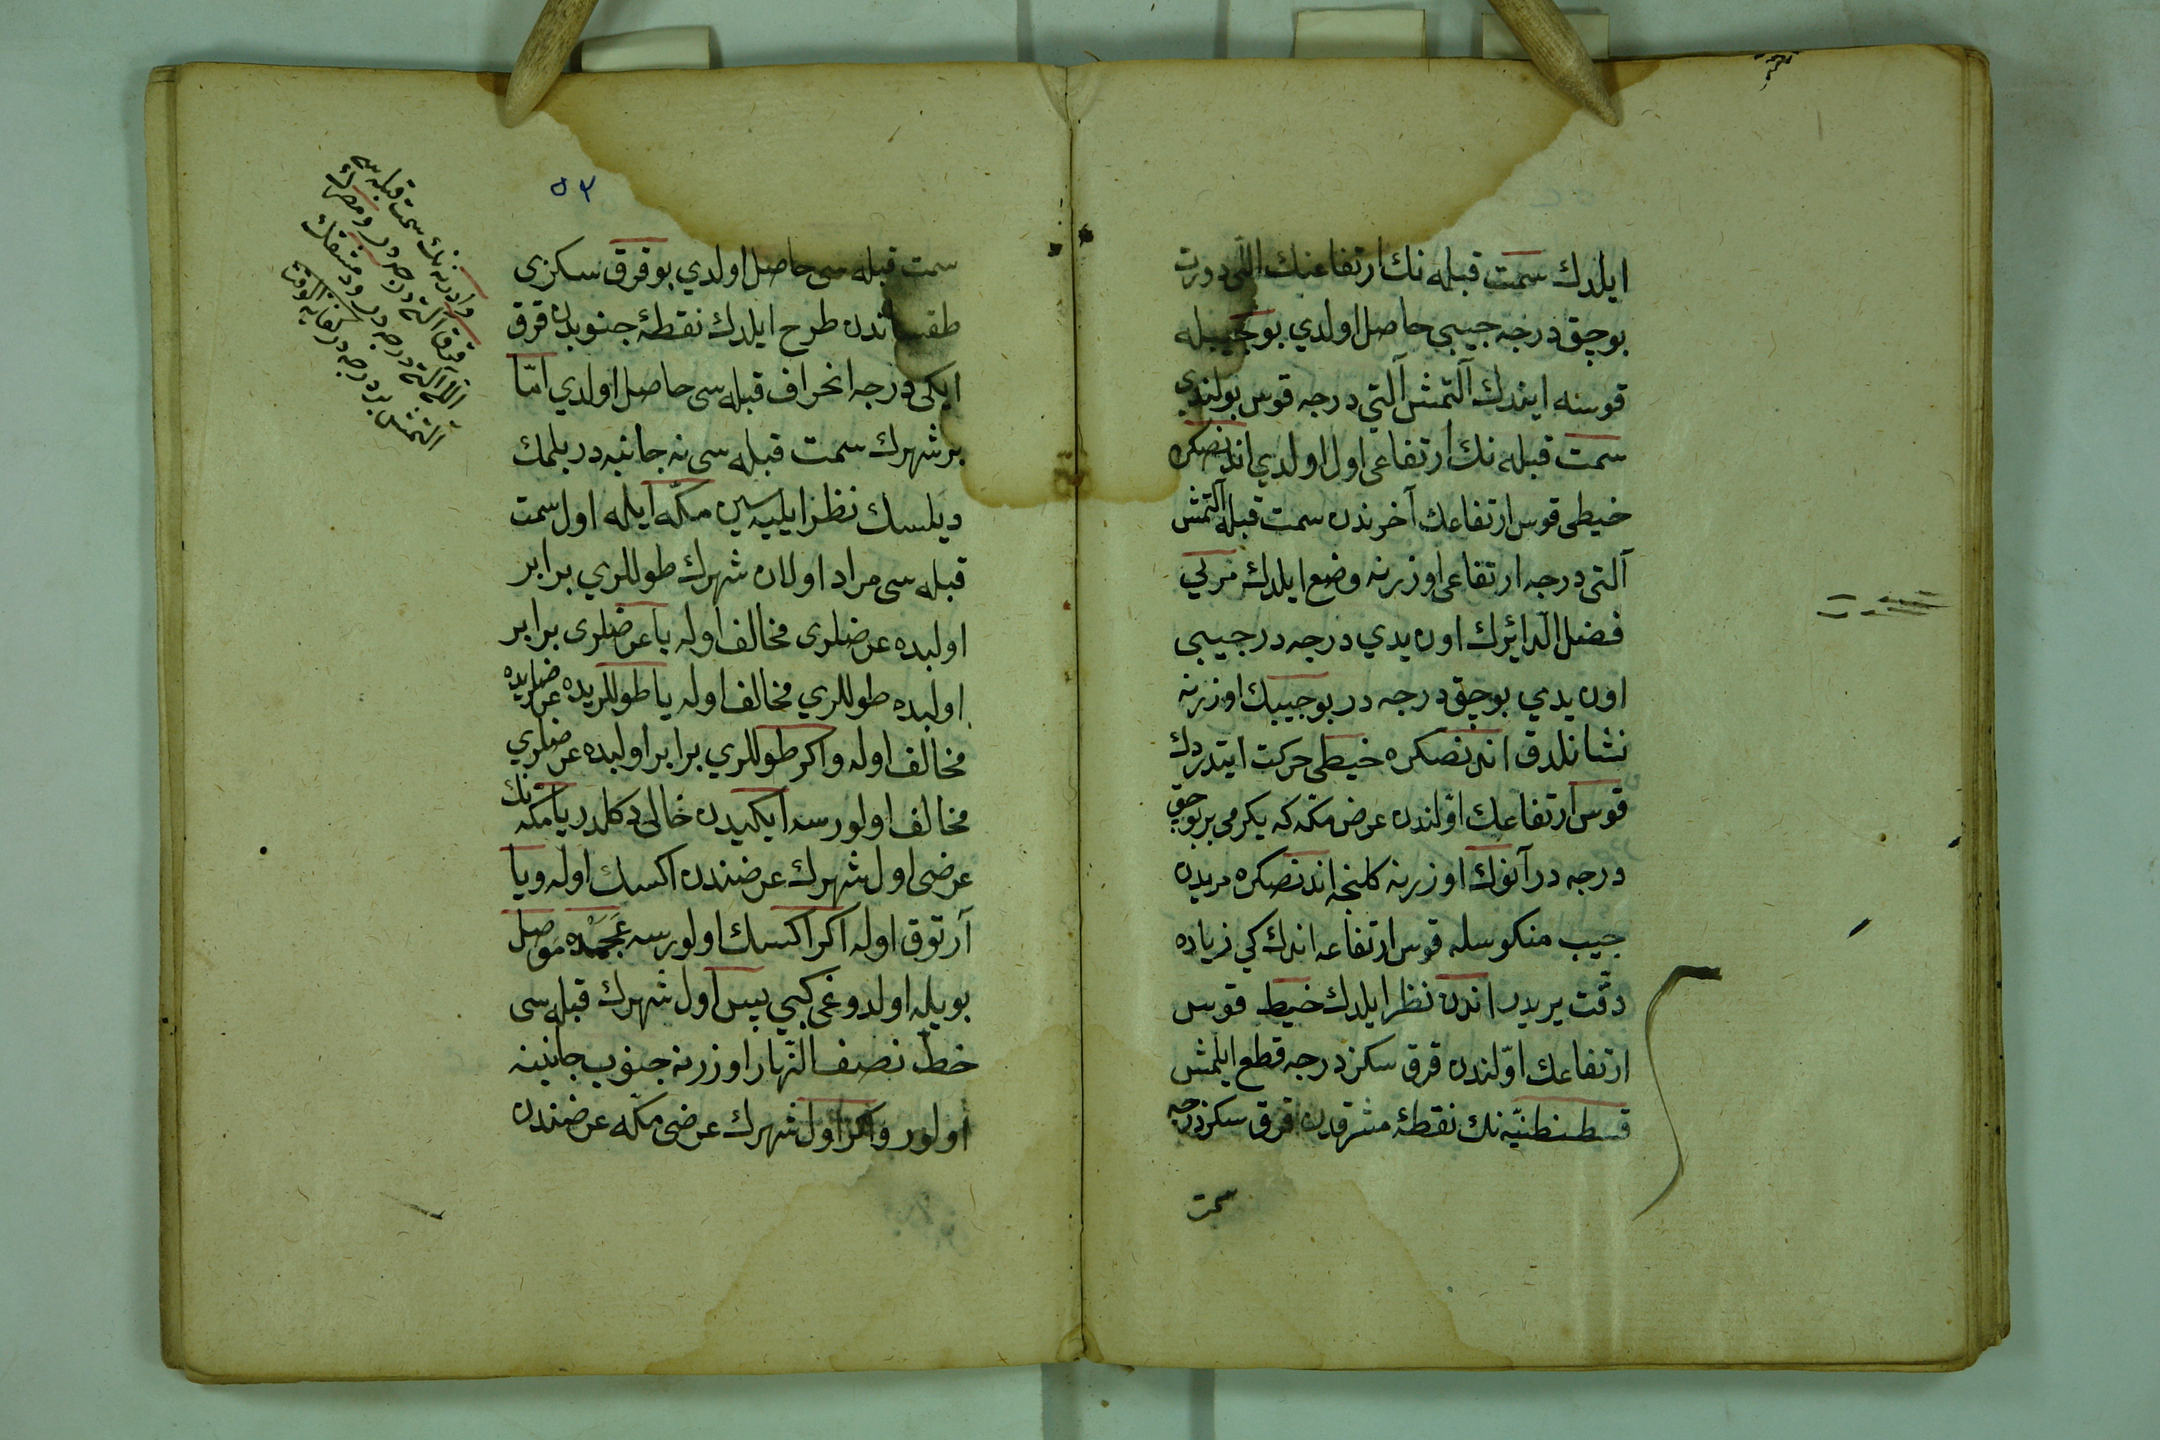 ايلدك سمت قبله نك ارتفاعنك اللى دورت
بوچق درجه جيبى حاصل اولدي بو جيبله
قوسنه ايندك آلتمش آلتي درجه قوس بولندي
سمت قبله نك ارتفاعى اول اولدي اندنصكره
خيطى قوس ارتفاعك آخرندن سمت قبله آلتمش
آلتى درجه ارتفاعى اوزرنه وضع ايلدك مريي
فضل الدائرك اون يدي درجه در جيبى
اون يدي بوچق درجه در بو جيبك اوزرنه
نشانلدق اندنصكره خيطى حركت ايتدردك
قوس ارتفاعك اوّلندن عرض مكّه كه يكرمى بر بوچق
درجه در آنوك اوزرنه كلنجه اندنصكره مريدن
جيب منكوسله قوس ارتفاعه اندك كي زياده
دقّت يريدر اندن نظر ايلدك خيط قوس
ارتفاعك اوّلندن قرق سكز درجه قطع ايلمش
قسطنطنيّه نك نقطۀ مشرقدن قرق سكز درجه
سمت
٥٢
سمت قبله سى حاصل اولدي بو قرق سكزى
طقساندن طرح ايلدك نقطۀ جنوبدن قرق
ايكى درجه انحراف قبله سى حاصل اولدي امّا
بر شهرك سمت قبله سى نه جانبه در بلمك
ديلسك نظر ايليه سين مكّه ايله اول سمت
قبله سى مراد اولان شهرك طوللري برابر
اولبده عرضلرى مخالف اوله يا عرضلرى برابر
اولبده طوللري مخالف اوله يا طوللريده عرضلريده
مخالف اوله واكر طوللري برابر اولبده عرضلري
مخالف اولورسه ايكيدن خالى دكلدر يا مكه نك
عرضى اول شهرك عرضندن اكسك اوله ويا
آرتوق اوله اكر اكسك اولورسه عجمده موصل
بويله اولدوغى كبي پس اول شهرك قبله سى
خطّ نصف النّهار اوزرنه جنوب جانبنه
اولور واكر اول شهرك عرضى مكّه عرضندن
وادرنه نك سمت قبله سى
قرق آلتى درجه در ومصرك
اللى آلتى درجه در ودمشقك
آلتمش يدى درجه در كفاية الوقت